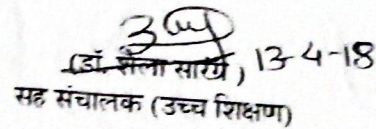 (डॉ. शैला सारंग), 13-4-18
सह संचालक (उच्च शिक्षण)